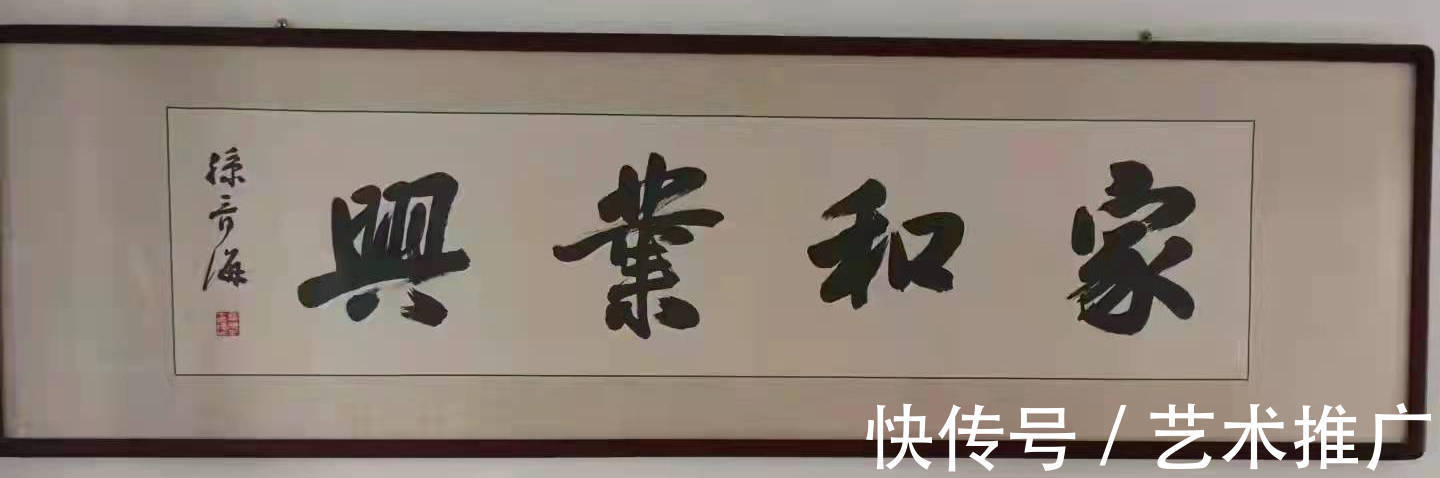 家和業興
孫奇海
快传号/艺术推广